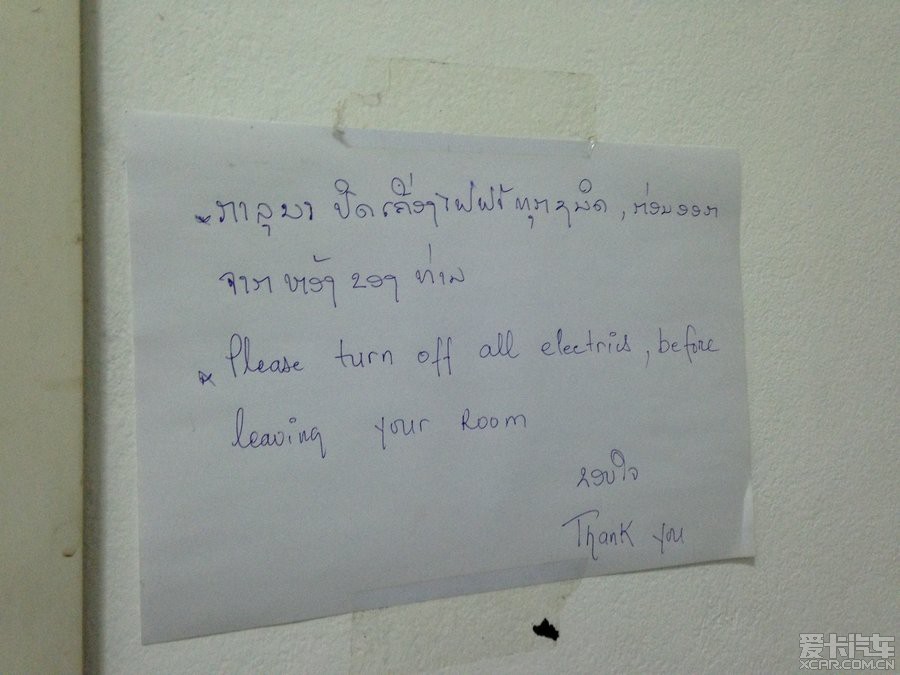 * ກາລຸນາ ປິດເຄື່ອງໄຟຟ້າທຸກຊະນິດ, ກ່ອນອອກ
ຈາກ ຫ້ອງ ຂອງ ທ່ານ
* Please turn off all electrics, before
leaving your Room
ຂອບໃຈ
Thank you
爱卡汽车
XCAR.COM.CN